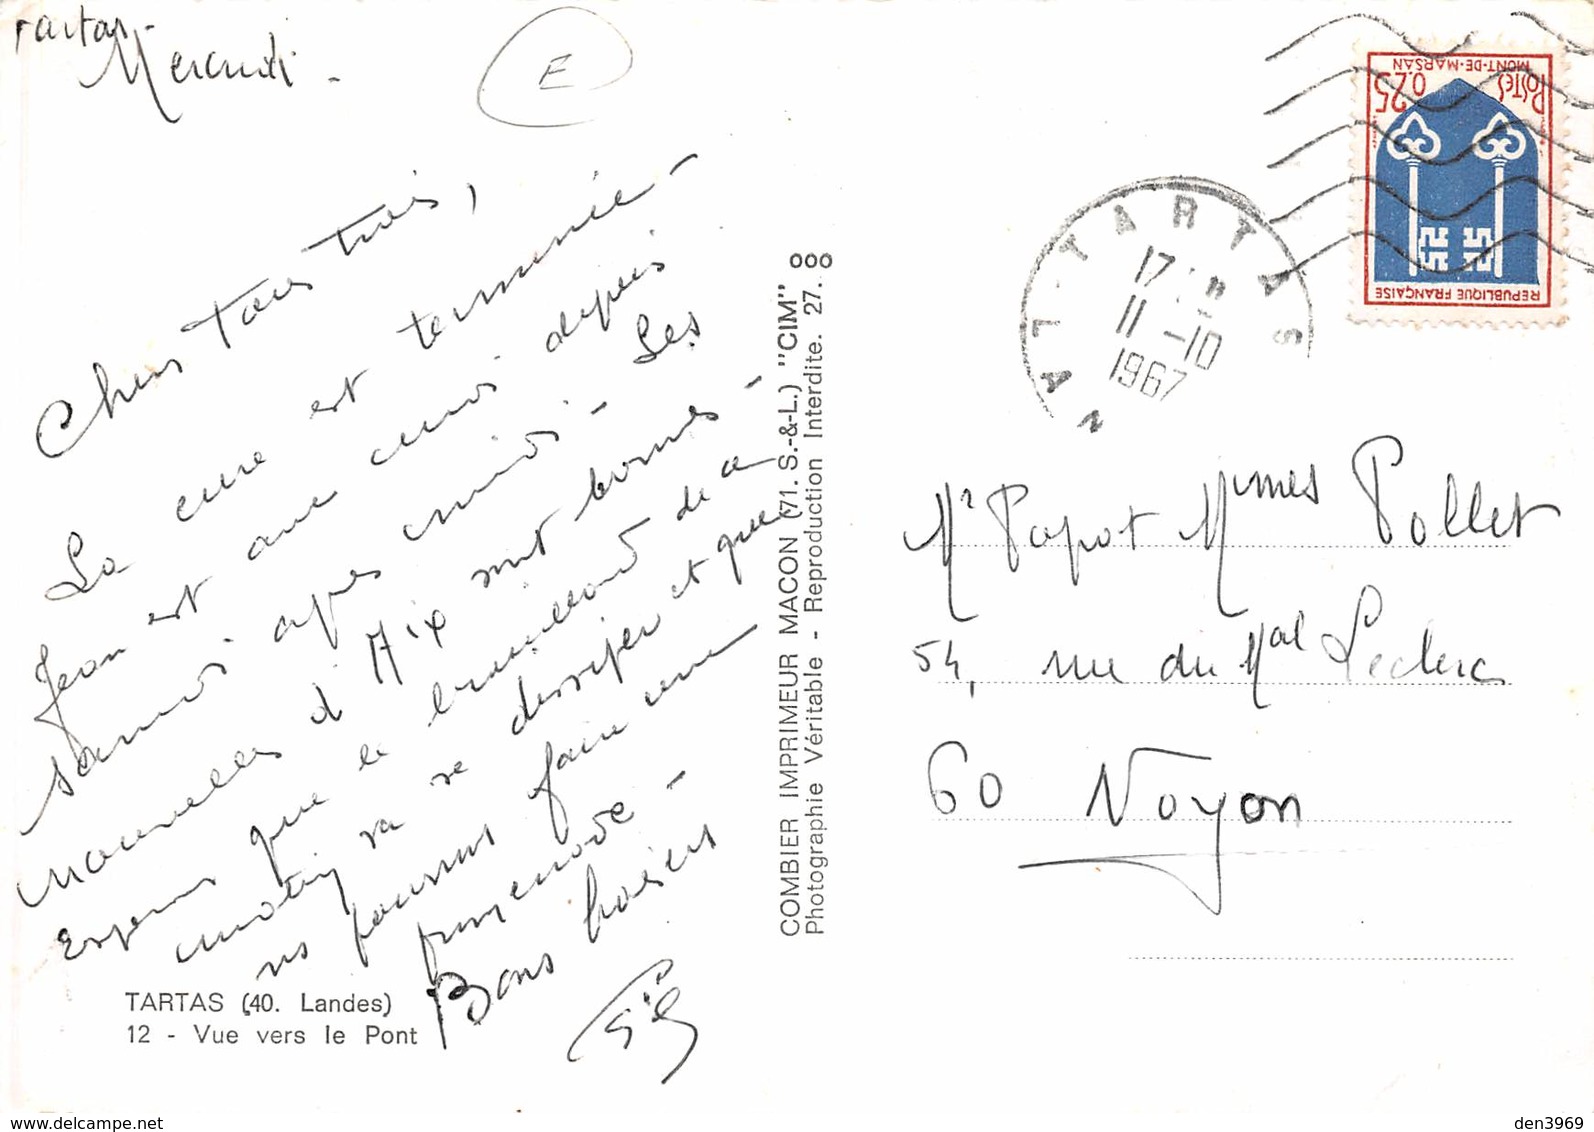 Tartas -
Mercredi -
E
Chers tous trois,
La cure est terminée -
Jean est avec moi depuis
samedi après midi - Les
nouvelles d'Aix sont bonnes -
Espérons que le brouillard de ce
matin va se dissiper et que
ns pourrons faire une
promenade -
Bons baisers
TARTAS (40. Landes)
12 - Vue vers le Pont
COMBIER IMPRIMEUR MACON (71. S.-&-L.) "CIM"
Photographie Véritable - Reproduction Interdite. 27.
000
TARTAS
LAN
17 H
11 -10
1967
POSTES
0,25
MONT-DE-MARSAN
REPUBLIQUE FRANÇAISE
Mr Papot Mmes Pollet
54, rue du Mal Leclerc
60 Noyon
den3969